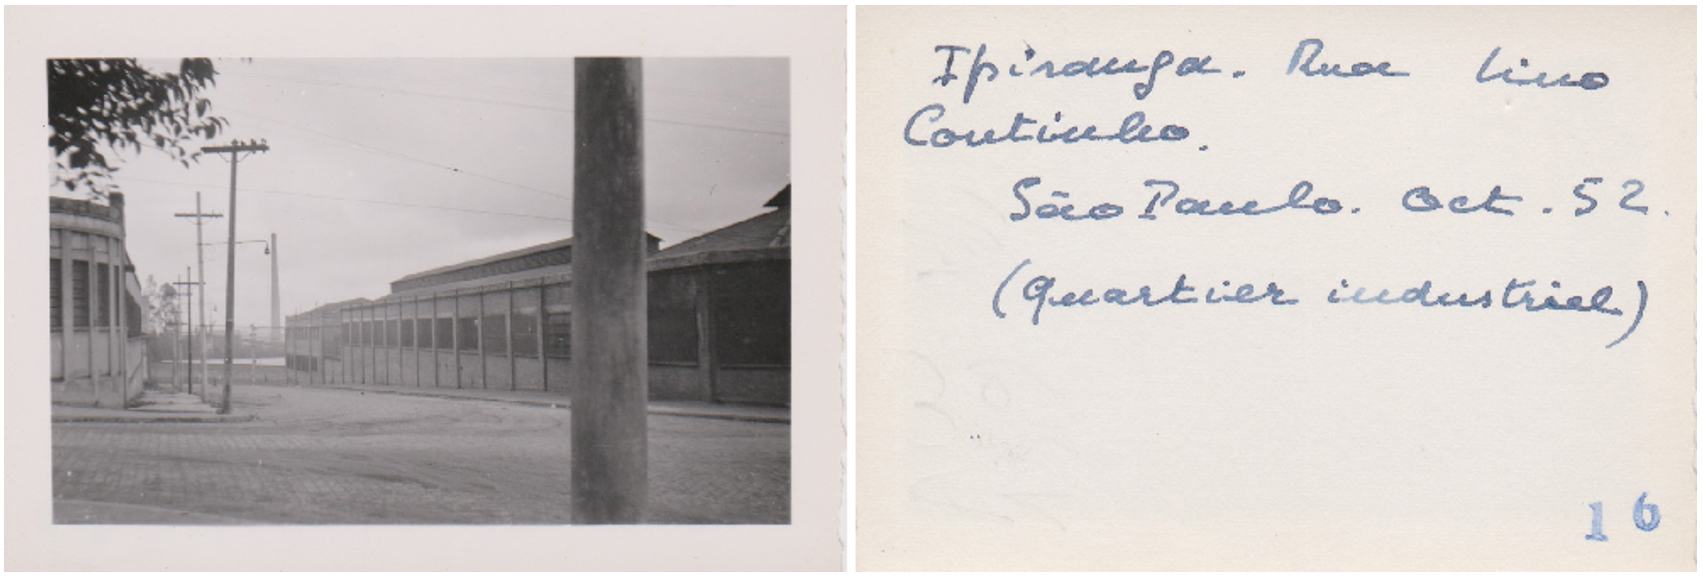 Ipiranga. Rua Lino
Coutinho.
São Paulo. Oct. 52.
(Quartier industriel)
16